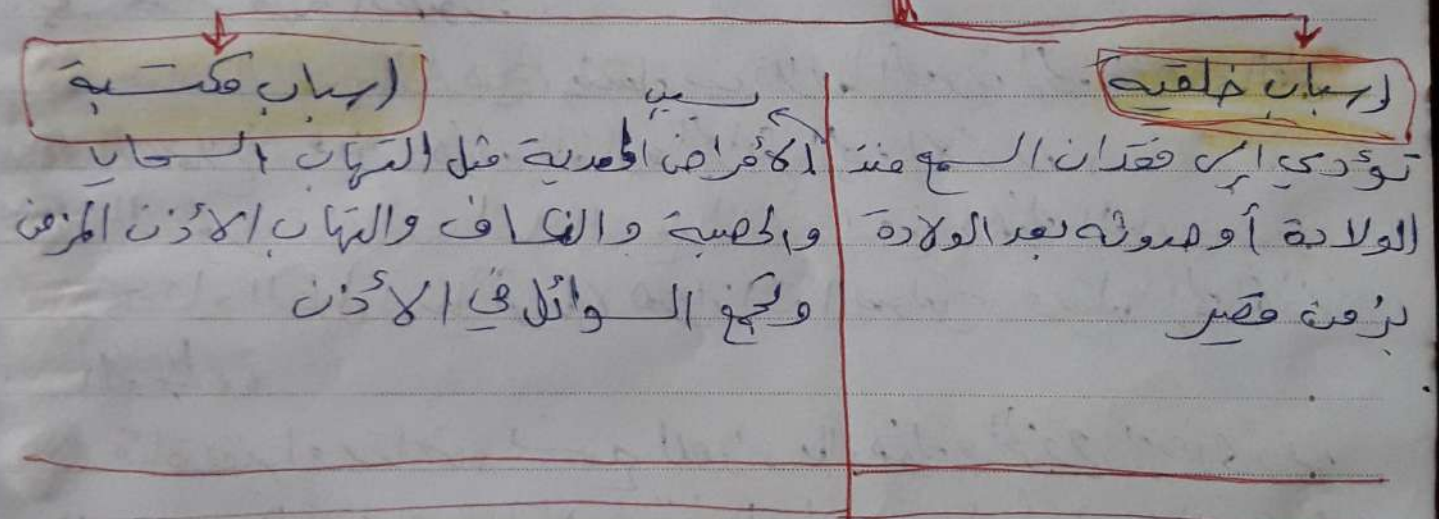 أسباب خلقيه
تؤدي إلى فقدان السمع منذ
الولادة أو حدوثه بعد الولادة
بزمن قصير
أسباب مكتسبة
بسبب
الأمراض المعدية مثل التهاب السحايا
والحصبة والنكاف والتهاب الأذن المزمن
وتجمع السوائل في الأذن